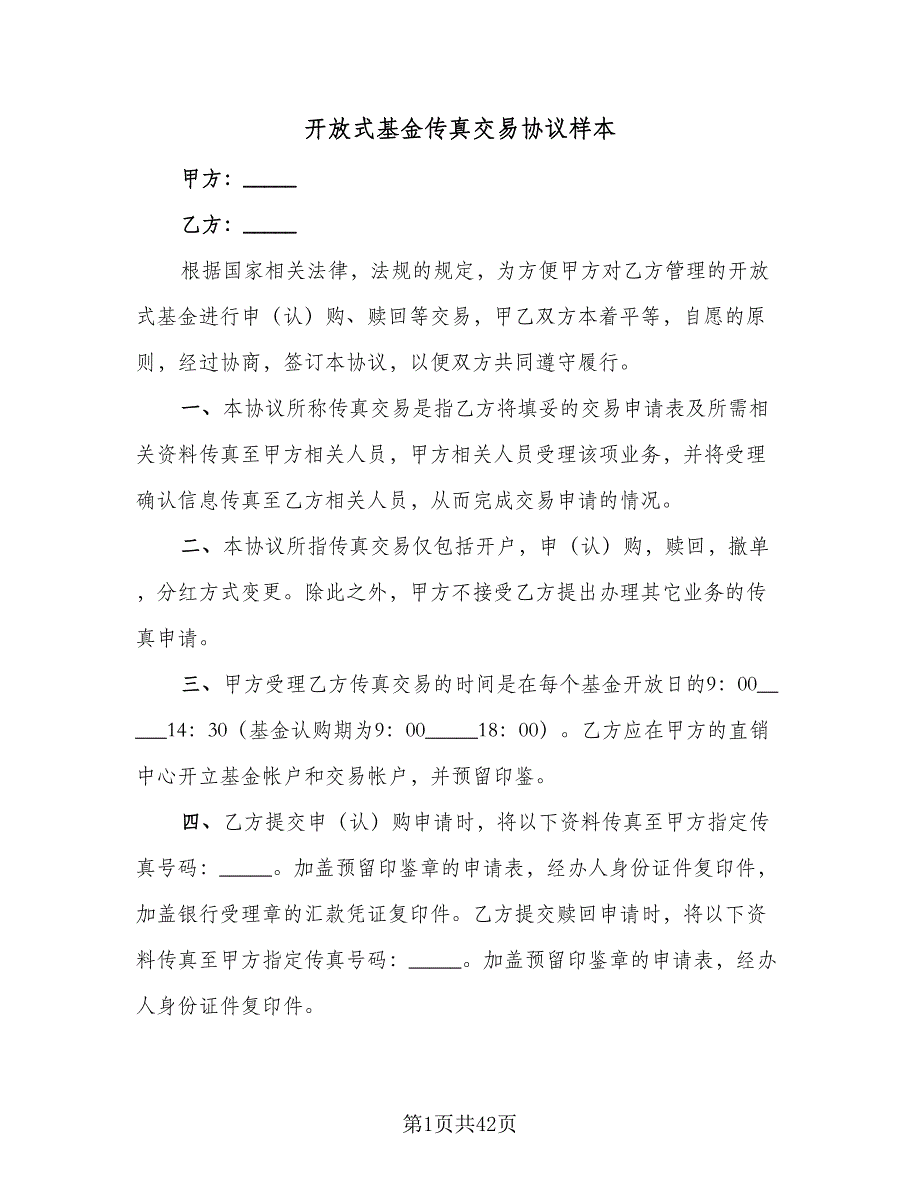 开放式基金传真交易协议样本
甲方：_____
乙方：_____
根据国家相关法律，法规的规定，为方便甲方对乙方管理的开放
式基金进行申（认）购、赎回等交易，甲乙双方本着平等，自愿的原
则，经过协商，签订本协议，以便双方共同遵守履行。
一、本协议所称传真交易是指乙方将填妥的交易申请表及所需相
关资料传真至甲方相关人员，甲方相关人员受理该项业务，并将受理
确认信息传真至乙方相关人员，从而完成交易申请的情况。
二、本协议所指传真交易仅包括开户，申（认）购，赎回，撤单
，分红方式变更。除此之外，甲方不接受乙方提出办理其它业务的传
真申请。
三、甲方受理乙方传真交易的时间是在每个基金开放日的9：00__
___14：30（基金认购期为9：00_____18：00）。乙方应在甲方的直销
中心开立基金帐户和交易帐户，并预留印鉴。
四、乙方提交申（认）购申请时，将以下资料传真至甲方指定传
真号码：_____。加盖预留印鉴章的申请表，经办人身份证件复印件，
加盖银行受理章的汇款凭证复印件。乙方提交赎回申请时，将以下资
料传真至甲方指定传真号码：_____。加盖预留印鉴章的申请表，经办
人身份证件复印件。
第1页共42页